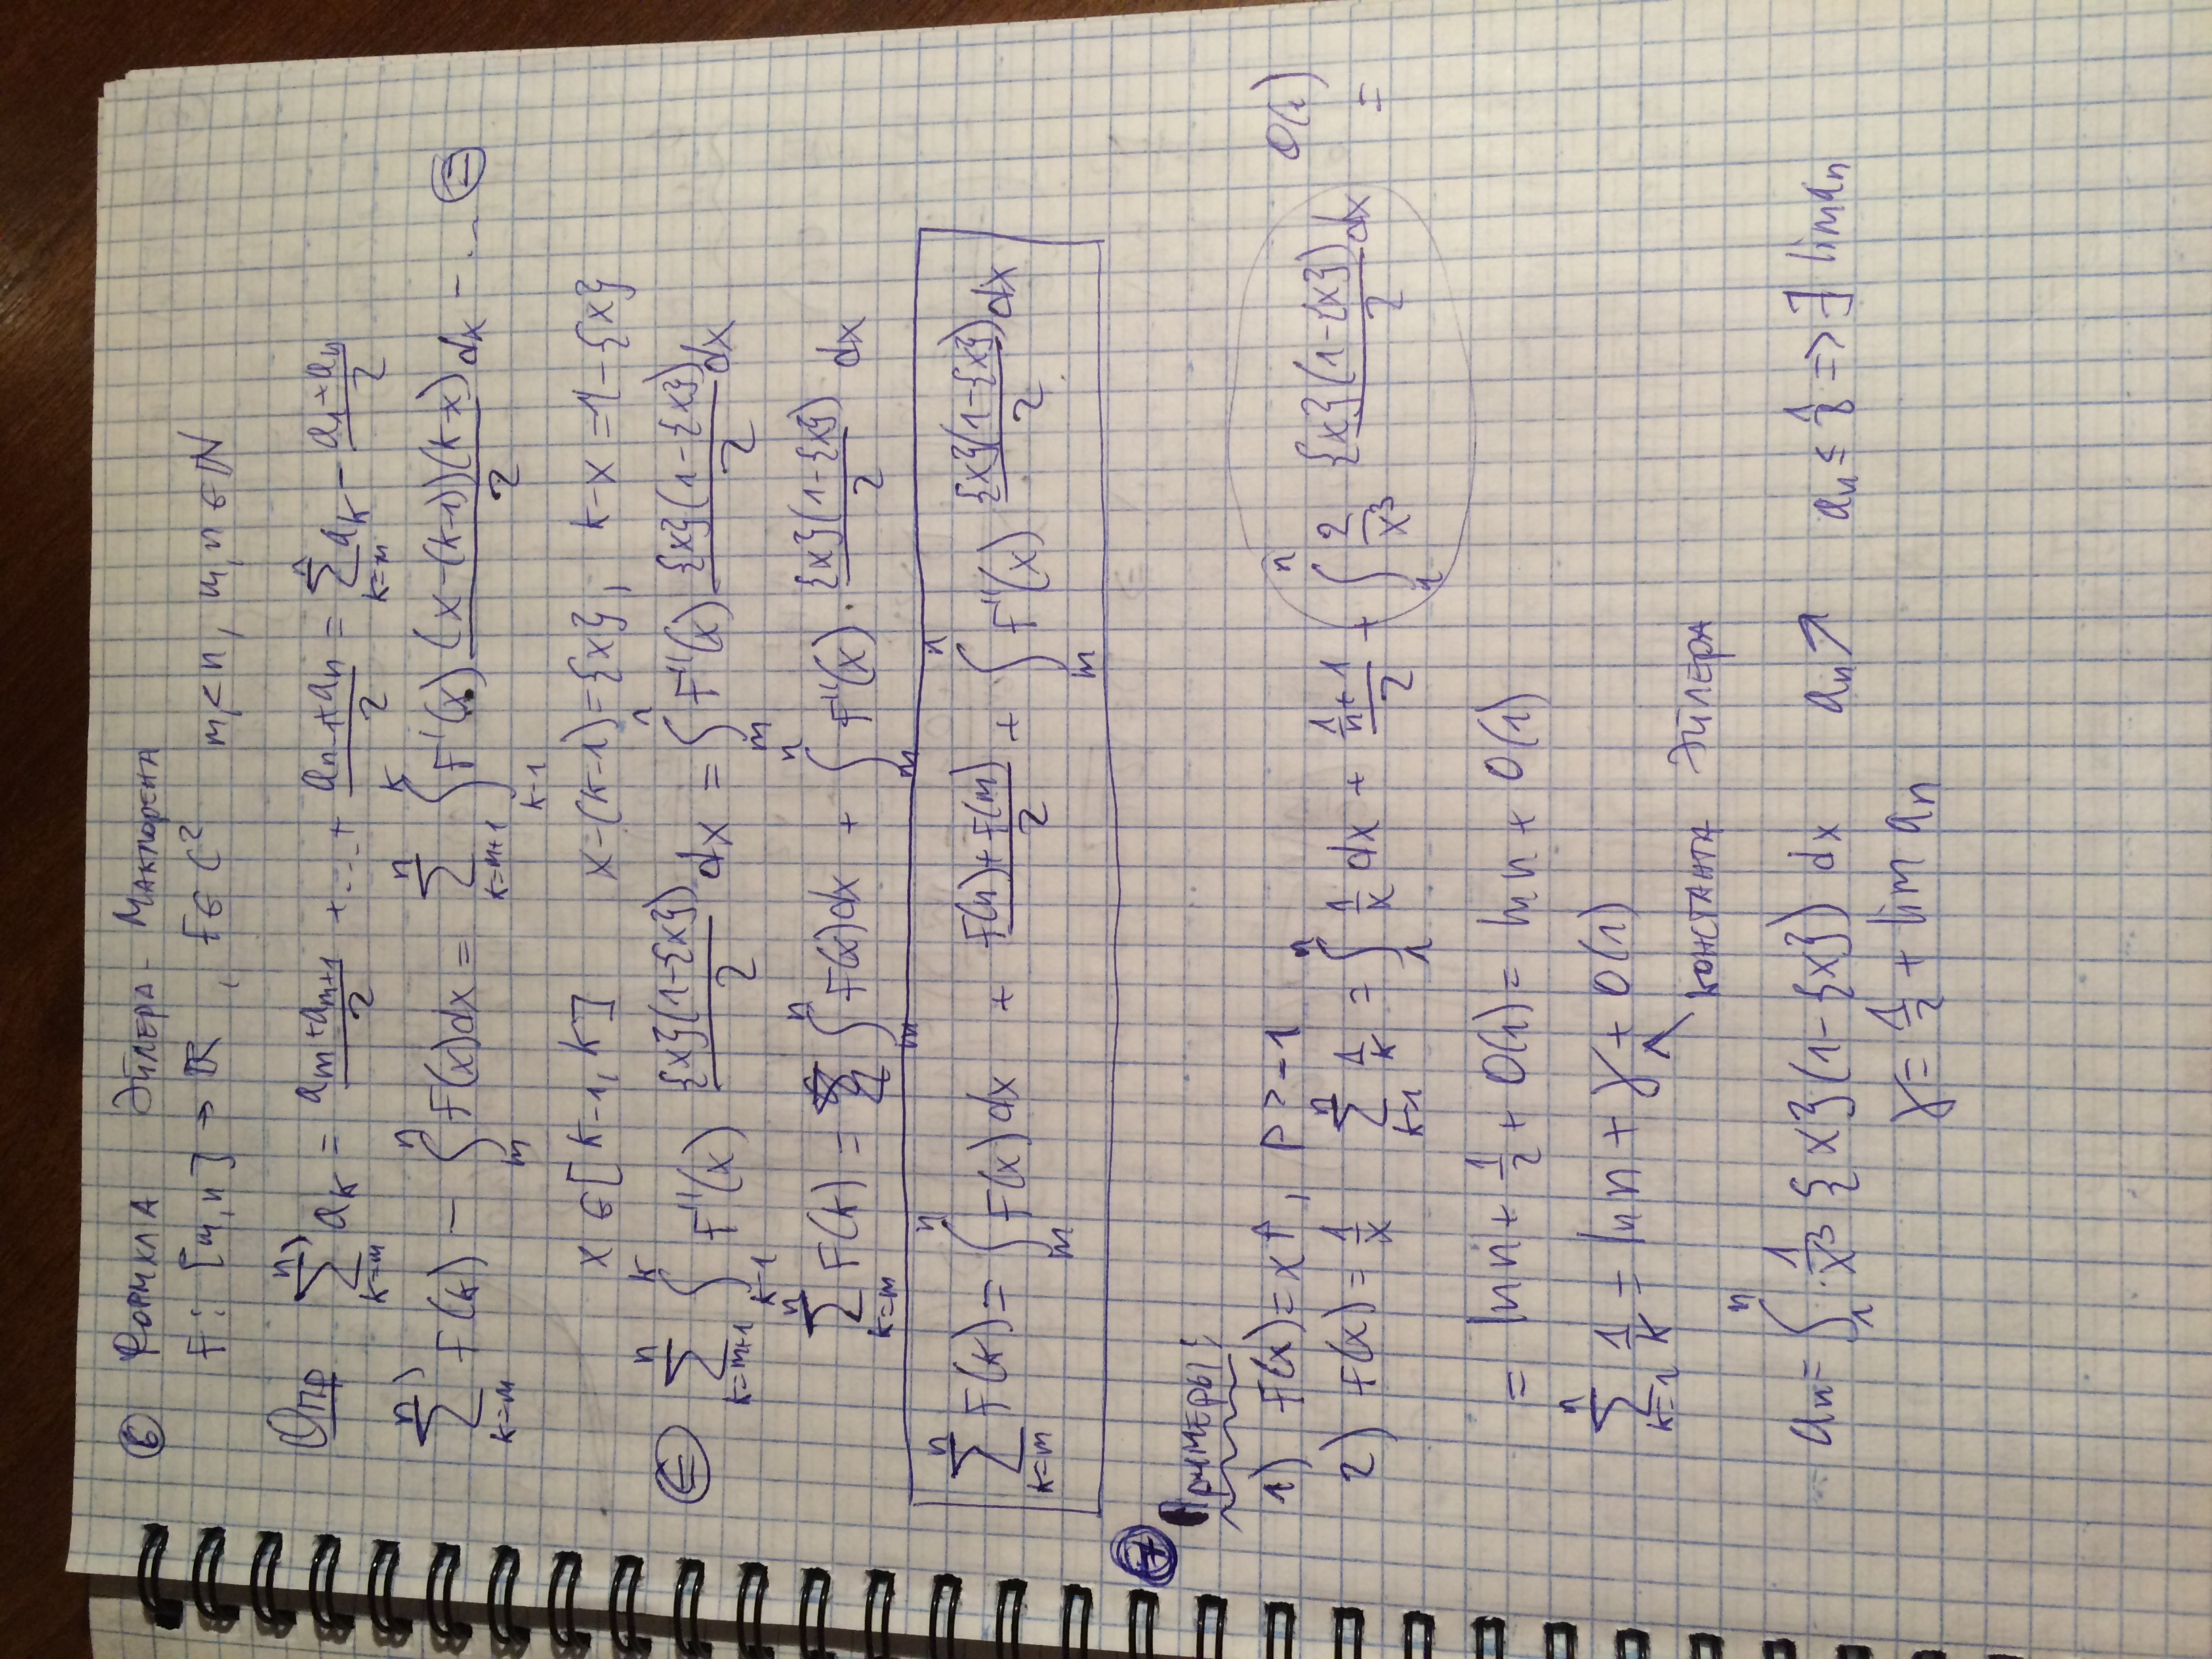 ⑥ Формула Эйлера-Маклорена
f: [m,n] → ℝ, f ∈ C² m<n, m,n ∈ ℕ
Опр ∑'_{k=m}^{n} a_k = (a_m+a_{m+1})/2 + ... + (a_{n-1}+a_n)/2 = ∑_{k=m}^{n} a_k - (a_1+a_n)/2
∑'_{k=m}^{n} f(k) - ∫_m^n f(x)dx = ∑_{k=m+1}^{n} ∫_{k-1}^{k} f'(x) (x-(k-1))(k-x)/2 dx - ... ⊜
x ∈ [k-1, k] x-(k-1)={x}, k-x=1-{x}
⊜ ∑_{k=m+1}^{n} ∫_{k-1}^{k} f''(x) {x}(1-{x})/2 dx = ∫_m^n f''(x) {x}(1-{x})/2 dx
∑_{k=m}^{n} f(k) = ∫_m^n f(x)dx + ∫_m^n f''(x) · {x}(1-{x})/2 dx
∑_{k=m}^{n} f(k) = ∫_m^n f(x)dx + (f(n)+f(m))/2 + ∫_m^n f''(x) {x}(1-{x})/2 dx
⑦
Примеры:
1) f(x)=x^p, p>-1
2) f(x)=1/x ∑_{k=1}^{n} 1/k = ∫_1^n 1/x dx + (1/n+1)/2 + ∫_1^n 2/x³ {x}(1-{x})/2 dx O(1) =
= ln n + 1/2 + O(1) = ln n + O(1)
∑_{k=1}^{n} 1/k = ln n + γ + o(1)
константа Эйлера
a_n = ∫_1^n 1/x³ {x}(1-{x}) dx a_n ↗ a_n ≤ 1/8 => ∃ lim a_n
γ = 1/2 + lim a_n